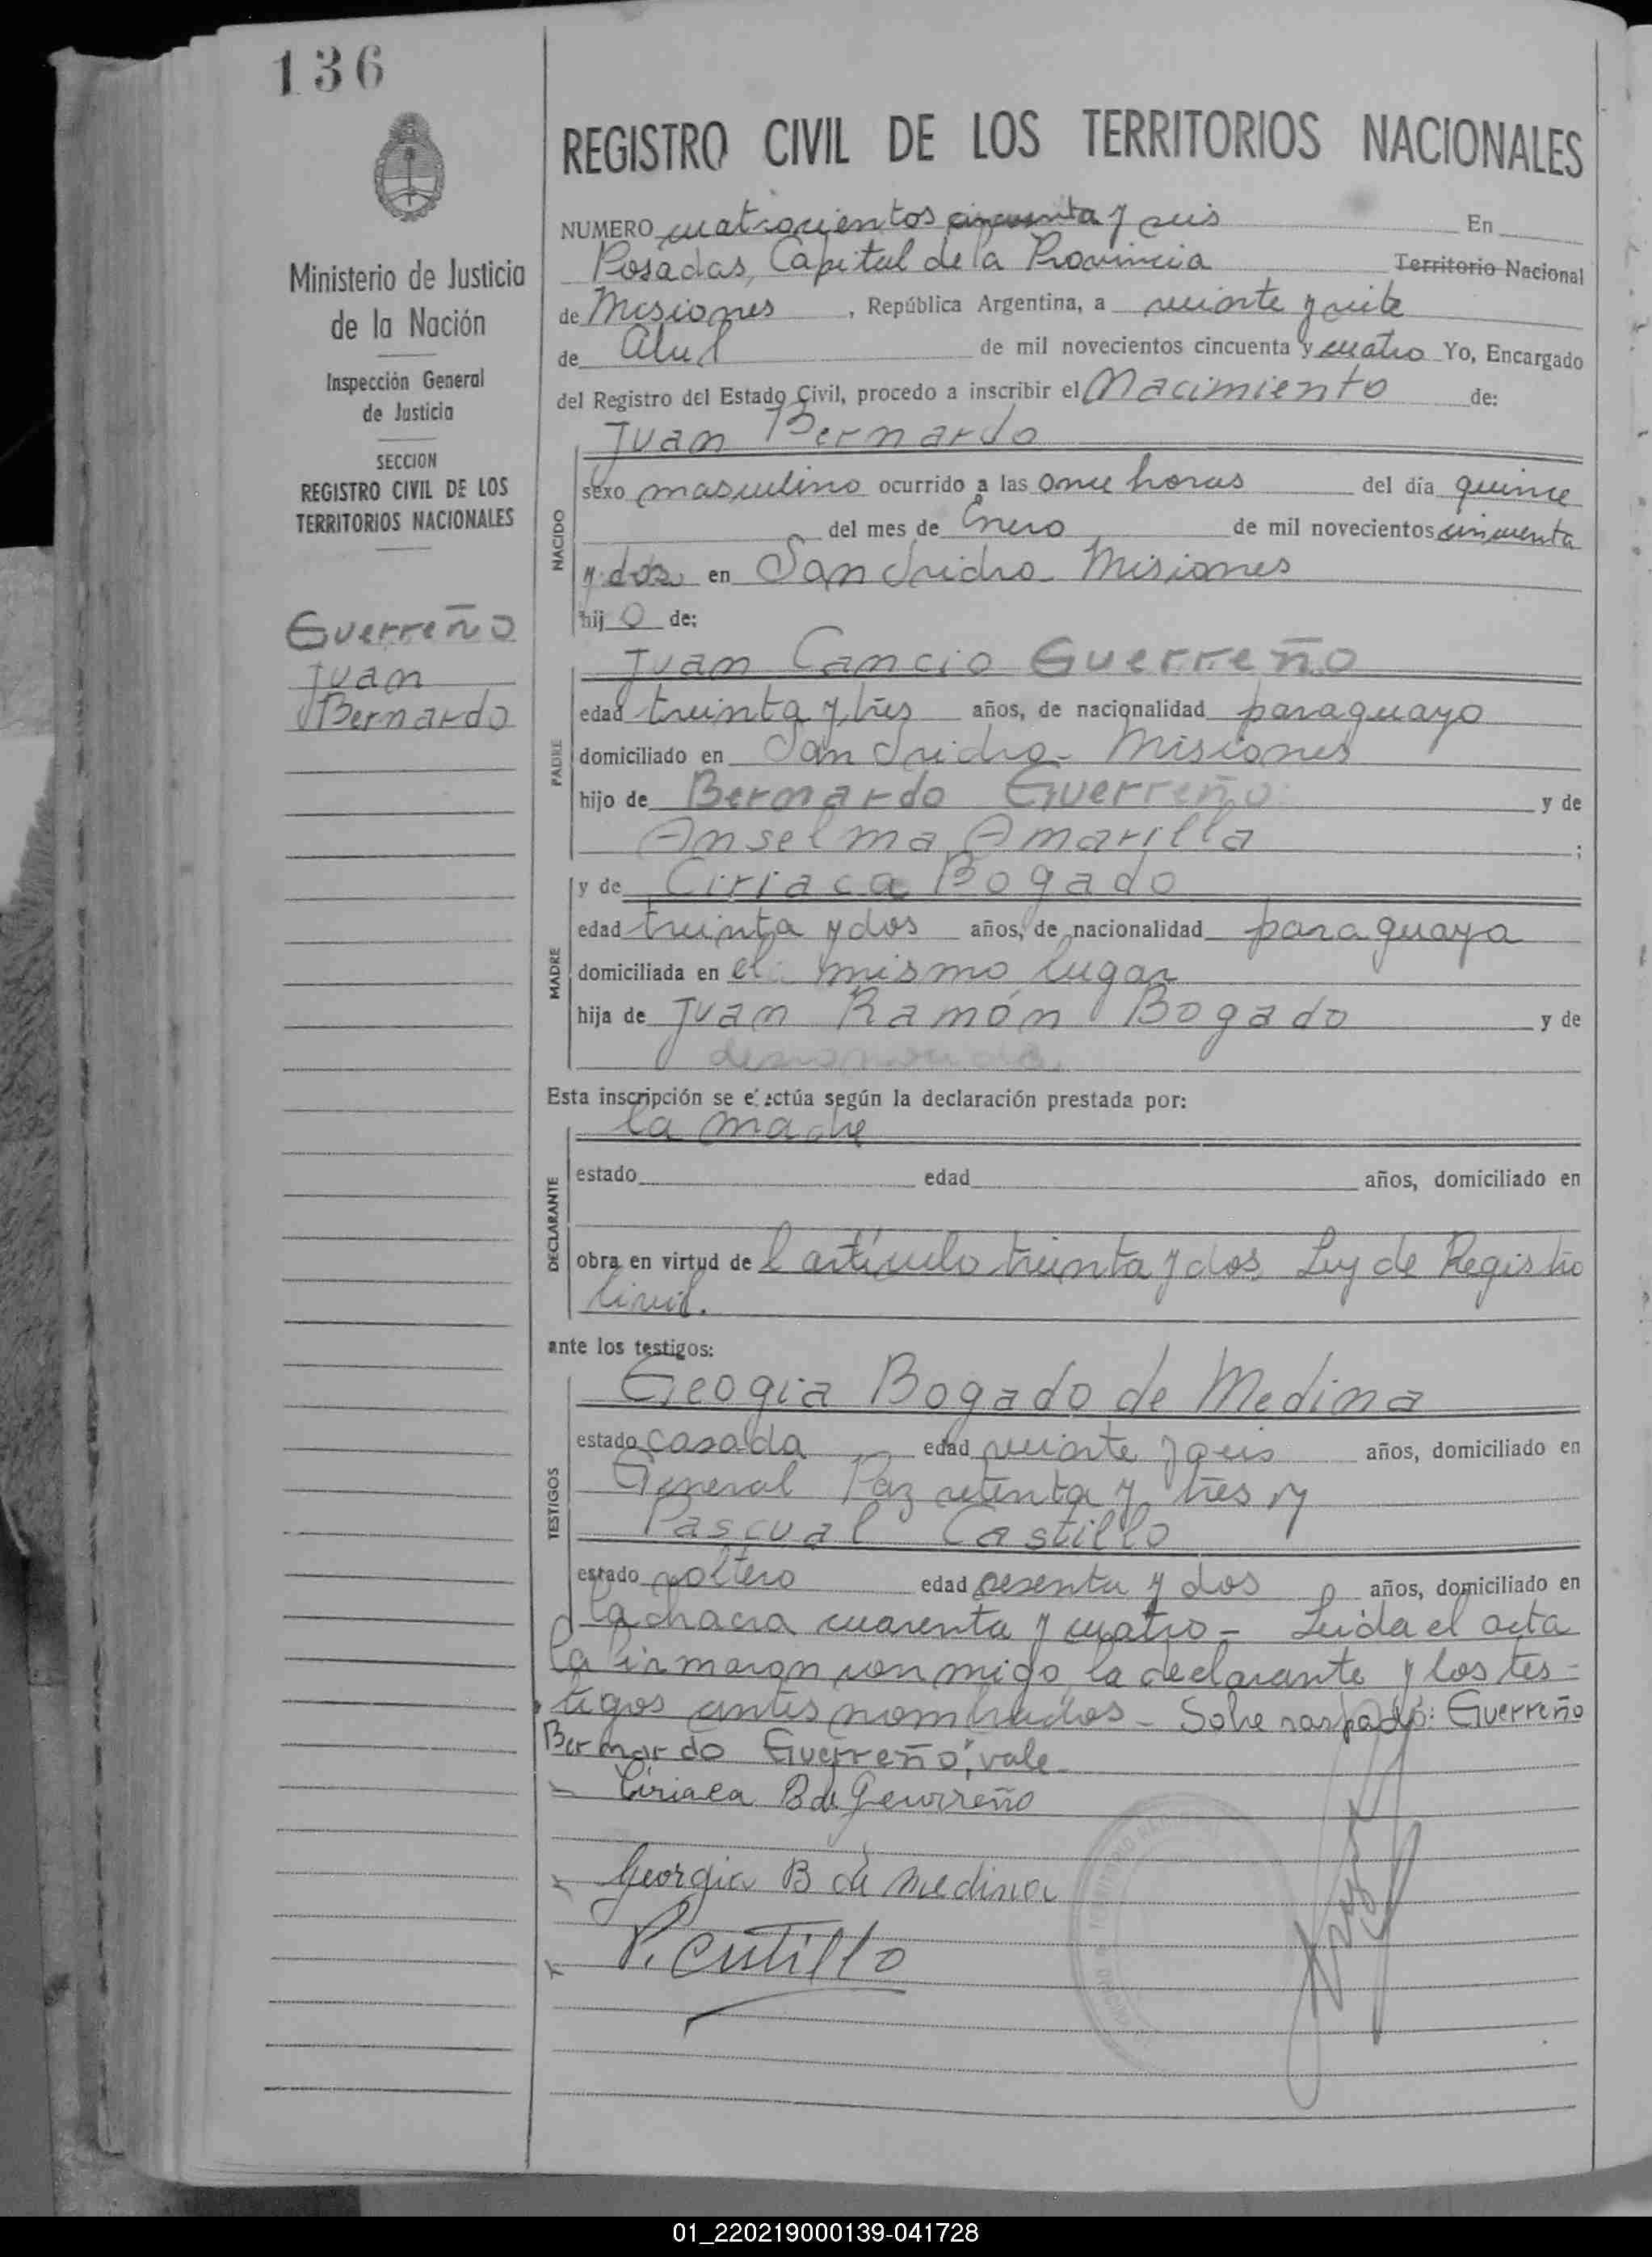 136
Ministerio de Justicia
de la Nación
Inspección General
de Justicia
SECCION
REGISTRO CIVIL DE LOS
TERRITORIOS NACIONALES
Guerreño
Juan
Bernardo
REGISTRO CIVIL DE LOS TERRITORIOS NACIONALES
NUMERO cuatrocientos cincuenta y seis En
Posadas, Capital de la Provincia Territorio Nacional
de Misiones, República Argentina, a veinte y siete
de Abril de mil novecientos cincuenta y cuatro Yo, Encargado
del Registro del Estado Civil, procedo a inscribir el Nacimiento de:
Juan Bernardo
NACIDO
sexo masculino ocurrido a las once horas del día quince
del mes de Enero de mil novecientos cincuenta
y dos en San Isidro Misiones
hijo de:
Juan Cancio Guerreño
PADRE
edad treinta y tres años, de nacionalidad paraguayo
domiciliado en San Isidro - Misiones
hijo de Bernardo Guerreño y de
Anselma Amarilla ;
MADRE
y de Ciriaca Bogado
edad treinta y dos años, de nacionalidad paraguaya
domiciliada en el mismo lugar
hija de Juan Ramón Bogado y de
desconocida
Esta inscripción se efectúa según la declaración prestada por:
la madre
DECLARANTE
estado edad años, domiciliado en
obra en virtud del artículo treinta y dos Ley de Registro
Civil.
ante los testigos:
TESTIGOS
Geogia Bogado de Medina
estado casada edad veinte y seis años, domiciliado en
General Paz setenta y tres y
Pascual Castillo
estado soltero edad sesenta y dos años, domiciliado en
la chacra cuarenta y cuatro - Leida el acta
la firmaron conmigo la declarante y los tes-
tigos antes nombrados - Sobre raspado: Guerreño
Bernardo Guerreño", vale -
Ciriaca B de Geurreño
Georgia B de Medina
P. Castillo
01_220219000139-041728